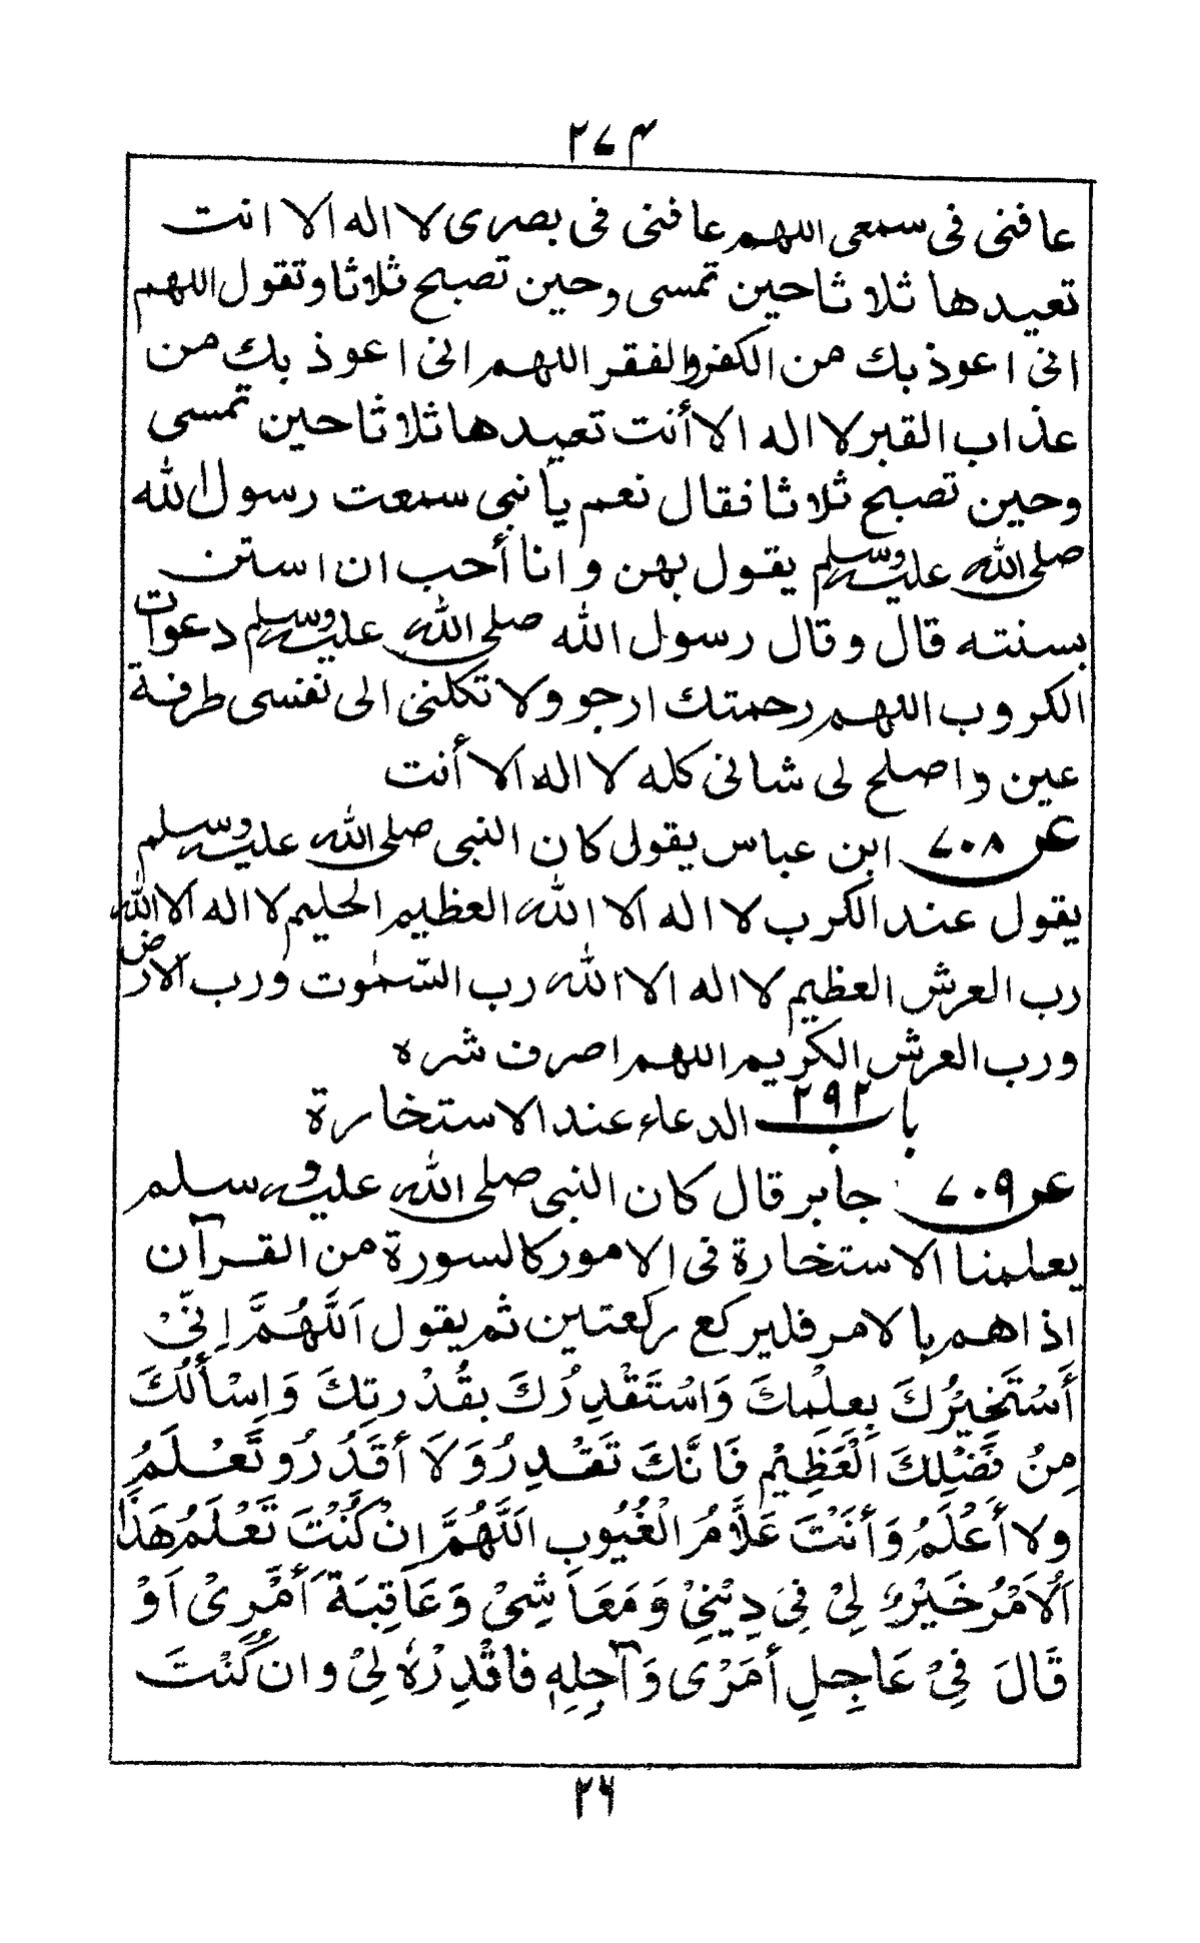 ۲۷۴
عافنى فى سمعى اللهم عافنى فى بصرى لا اله الا انت
تعيدها ثلاثا حين تمسى وحين تصبح ثلاثا وتقول اللهم
انى اعوذ بك من الكفر والفقر اللهم انى اعوذ بك من
عذاب القبر لا اله الا أنت تعيدها ثلاثا حين تمسى
وحين تصبح ثلاثا فقال نعم يا نبى سمعت رسول الله
صلى الله عليه وسلم يقول بهن وانا أحب ان استن
بسنته قال وقال رسول الله صلى الله عليه وسلم دعوات
الكروب اللهم رحمتك ارجو ولا تكلنى الى نفسى طرفة
عين واصلح لى شانى كله لا اله الا أنت
عن ۷۰۸ ابن عباس يقول كان النبى صلى الله عليه وسلم
يقول عند الكرب لا اله الا الله العظيم الحليم لا اله الا الله
رب العرش العظيم لا اله الا الله رب السّمٰوت ورب الارض
ورب العرش الكريم اللهم اصرف شره
باب ۲۹۲ الدعاء عند الاستخارة
عن ۷۰۹ جابر قال كان النبى صلى الله عليه وسلم
يعلمنا الاستخارة فى الامور كالسورة من القرآن
اذا هم بالامر فليركع ركعتين ثم يقول اَللَّهُمَّ اِنِّىْ
أَسْتَخِيْرُكَ بِعِلْمِكَ وَاسْتَقْدِرُكَ بِقُدْرتِكَ وَاسْأَلُكَ
مِنْ فَضْلِكَ الْعَظِيْمِ فَانَّكَ تَقْدِرُ وَلَا أَقْدُرُ وتَعْلَمُ
ولا أَعْلَمُ وَأَنْتَ عَلَّامُ الْغُيُوبِ اللَّهُمَّ اِنْ كُنْتَ تَعْلَمُ هَذَا
اَلْاَمْرُ خَيْرٌ لِىْ فِىْ دِيْنِىْ وَمَعَاشِىْ وَعَاقِبَة اَمْرِىْ اَوْ
قَالَ فِىْ عَاجِلِ أَمْرْى وَآجِلِهٖ فاقْدِرْهُ لِىْ وان كُنْتَ
۲۶